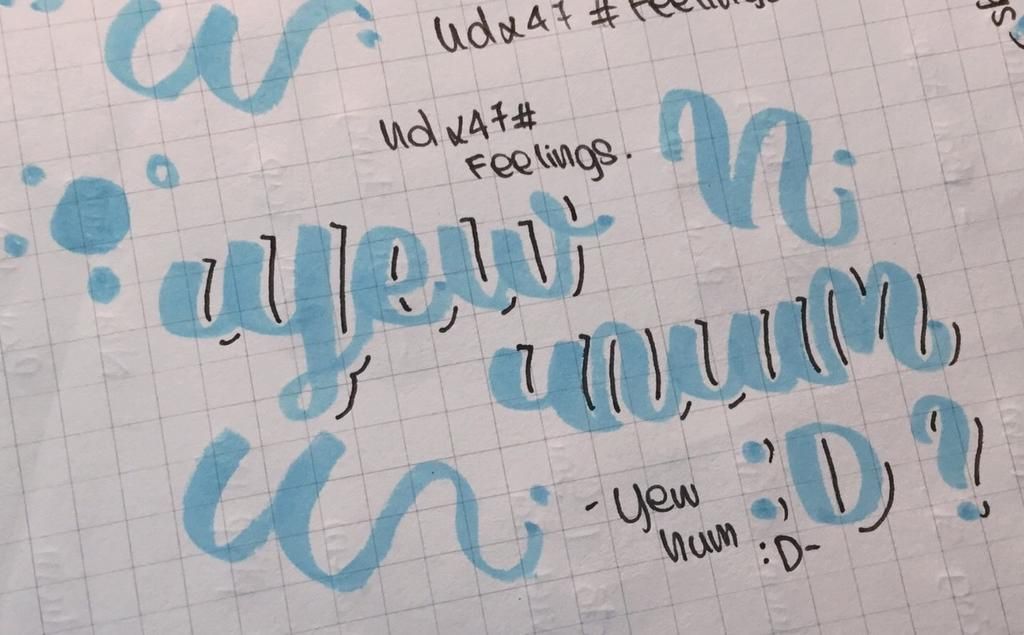 udx47 # Feelings
udx47#
Feelings.
yew
num
:D ?
- yew
num
:D-